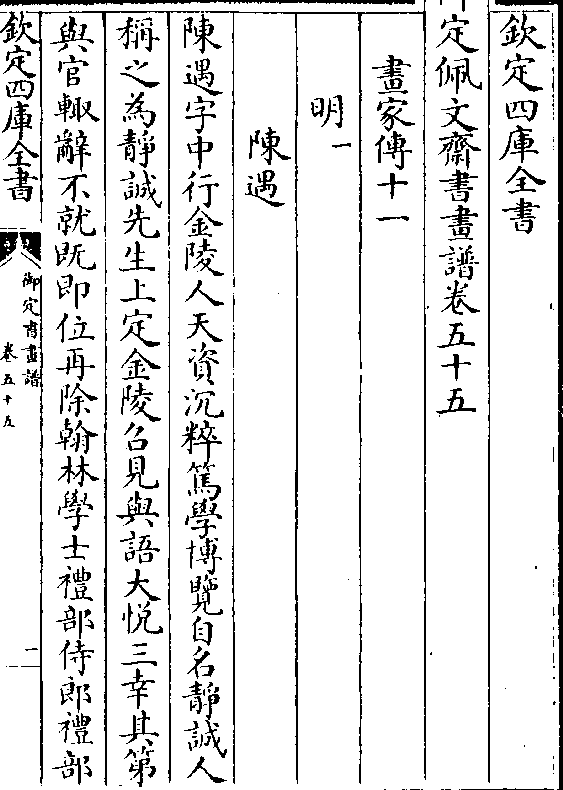 欽定四庫全書
定佩文齋書畫譜卷五十五
畫家傳十一
明一
陳遇
陳遇字中行金陵人天資沉粹篤學博覽自名靜誠人
稱之為靜誠先生上定金陵召見與語大悅三幸其第
與官輙辭不就旣即位再除翰林學士禮部侍郎禮部
欽定四庫全書
御定書畫譜
卷五十五
一